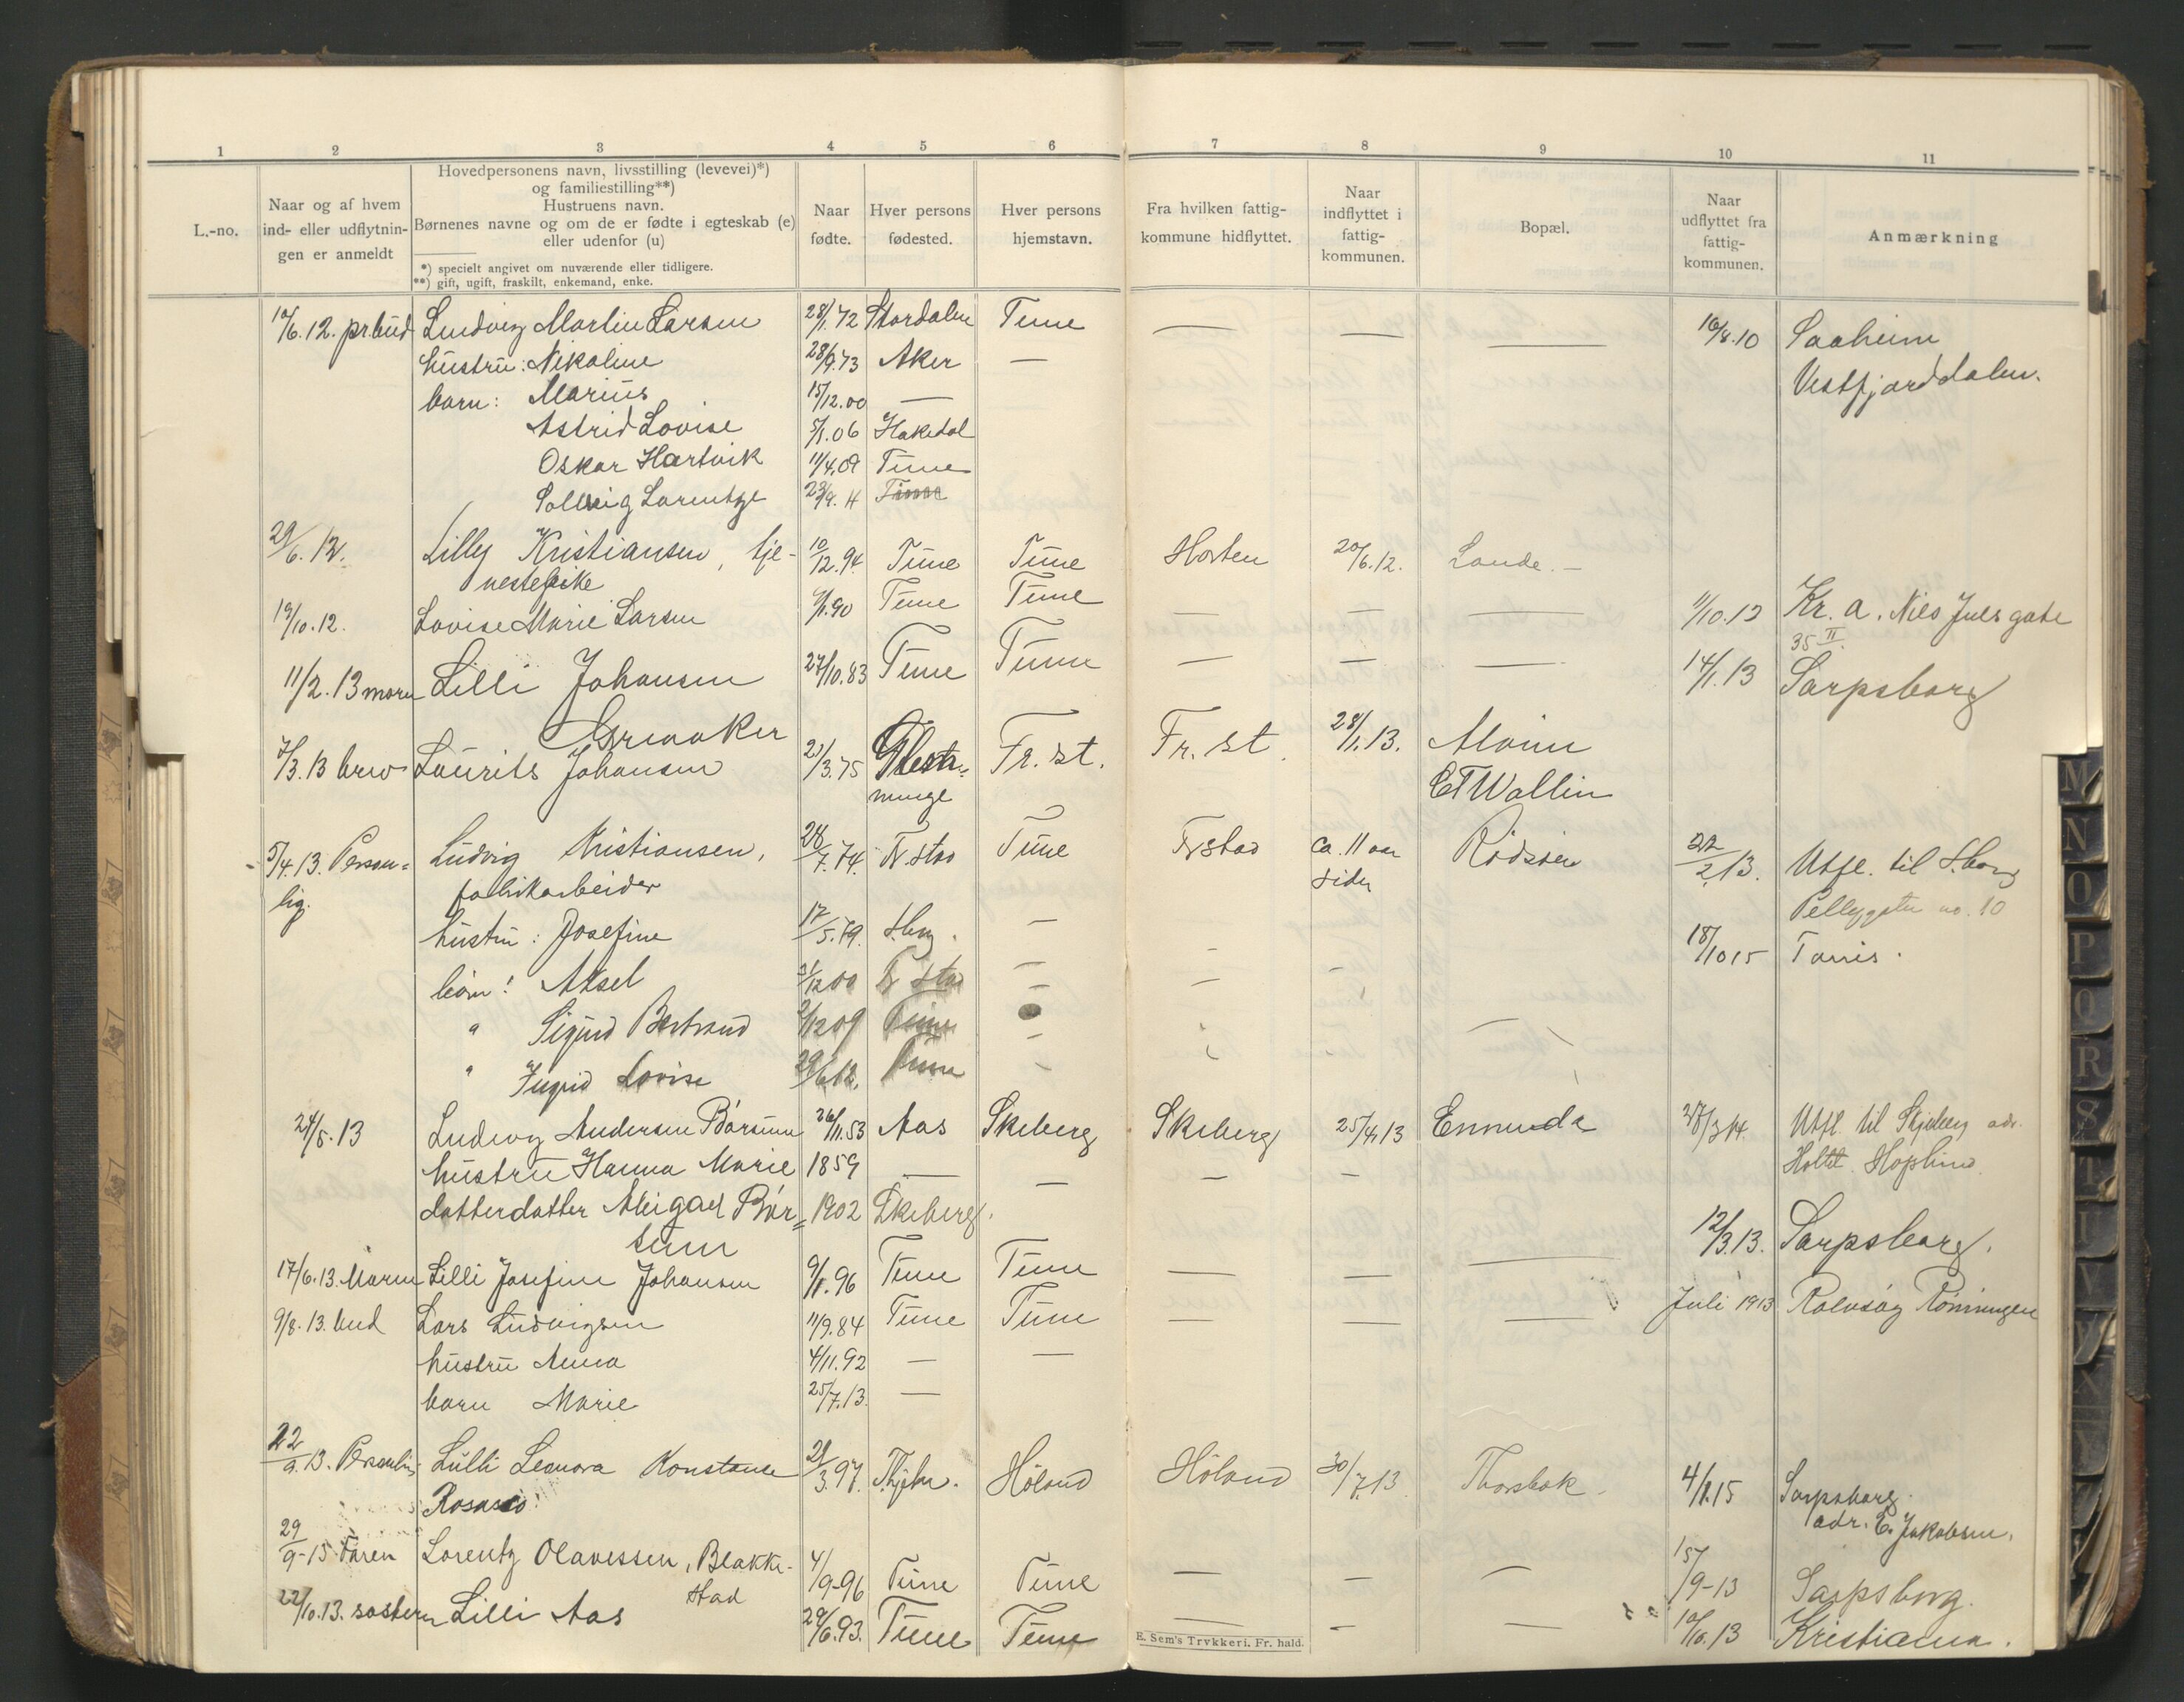 1 2 3 4 5 6 7 8 9 10 11
L.-no.
Naar og af hvem
ind- eller udflytnin-
gen er anmeldt
Hovedpersonens navn, livsstilling (levevei)*)
og familiestilling**)
Hustruens navn.
Børnenes navne og om de er fødte i egteskab (e)
eller udenfor (u)
*) specielt angivet om nuværende eller tidligere.
**) gift, ugift, fraskilt, enkemand, enke.
Naar
fødte.
Hver persons
fødested.
Hver persons
hjemstavn.
Fra hvilken fattig-
kommune hidflyttet.
Naar
indflyttet i
fattig-
kommunen.
Bopæl.
Naar
udflyttet fra
fattig-
kommunen.
Anmærkning
10/6.12. pr bud Ludvig Martin Larsen 28/1.72 Stordalen Tune — — — 10/8.10 Saaheim
hustru: Nikoline 28/9.73 Aker — Vestfjorddalen.
barn: Marius 15/12.00 —
Astrid Lovise 5/1.06 Hakedal
Oskar Hartvik 11/4.09 Tune
Sollveig Larentze 23/9.11 Tune
29/6.12. Lilly Kristiansen, tje- 10/12.94 Tune Tune Horten 20/6.12. Lande. —
nestepike
19/10.12. Lovise Marie Larsen 9/1.90 Tune Tune — — — 11/10.12 Kr. a. Niels Juels gate
35 II
11/2.13 moren Lilli Johansen 27/10.83 Tune Tune — — — 14/1.13 Sarpsborg
Greaaker
7/3.13 brev Laurits Johansen 21/3.75 Glem- Fr. st. Fr. st. 28/1.13. Alvim
minge E T Wallin
5/4.13. Person- Ludvig Kristiansen, 28/7.74. Fr. stad Tune Frstad ca. 11 aar Rödsöen 22/2.13. Utfl. til S.borg
lig. fabrikarbeider siden Pellygaten no. 10
hustru: Josefine 17/5.79. S.borg. — 18/10 15 Torris.
börn: Aksel 31/12 00 Fr stad —
" Sigurd Bertrand 2/12 09 Tune
" Ingrid Lovise 29/6.12. Tune
24/5.13 Ludvig Andersen Börsum 26/11.53 Aas Skeberg Skeberg 25/4.13 Ennerdx 27/3 14. Utfl. til Skjeberg adr.
hustru Hanna Marie 1859 — — — — Holtet Hoplund.
datterdatter Abigael Bör= 1902 Skeberg.
sum
17/6.13. Moren Lilli Josefine Johansen 9/1.96 Tune Tune — — — 12/3.13. Sarpsborg.
9/8.13. bud Lars Ludvigsen 11/9.84 Tune Tune — — — Juli 1913 Rolvsöy Röningen
hustru Anna 4/11.92 — —
barn Marie 25/7.13. —
22/9.13. Personlig Lulli Leonora Konstanse 21/3.97. Höland Höland 30/7.13. Thorsbak. 4/1.15 Sarpsborg.
adr. E. Jakobsen.
29/9-15 Faren Lorentz Olavessen, Blakke- 4/9-96 Tune Tune — — — 15/9-13 Sarpsborg.
stad
22/10.13. sösteren Lilli Aas 29/6.93. Tune Tune — — — 10/10.13 Kristiania.
E. Sem's Trykkeri. Fr. hald.
M
N
O
P
Q
R
S
T
U
V
W
X
Y